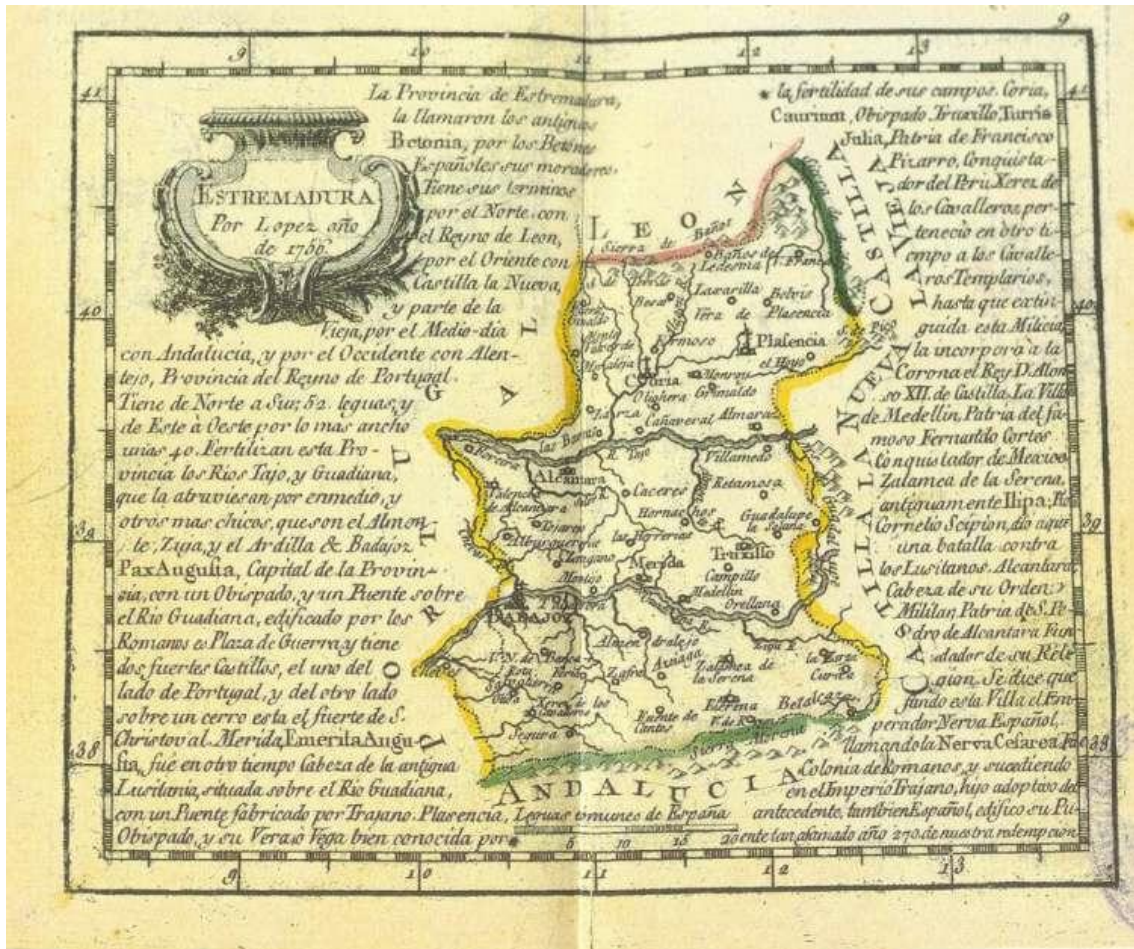 9
9
10
11
12
13
ESTREMADURA
Por Lopez año
de 1766.
La Provincia de Estremadura,
la llamaron los antiguos
Betonia, por los Betones
Españoles sus moradores.
Tiene sus terminos
por el Norte con
el Reyno de Leon,
por el Oriente con
Castilla la Nueva,
y parte de la
Vieja, por el Medio-dia
con Andalucia, y por el Occidente con Alen-
tejo, Provincia del Reyno de Portugal.
Tiene de Norte a Sur, 52. leguas, y
de Este à Oeste por lo mas ancho
unas 40. Fertilizan esta Pro-
vincia los Rios Tajo, y Guadiana,
que la atraviesan por enmedio, y
otros mas chicos, que son el Almon
te, Zuja, y el Ardilla & Badajoz
PaxAugusta, Capital de la Provin-
sia, con un Obispado, y un Puente sobre
el Rio Guadiana, edificado por los
Romanos es Plaza de Guerra, y tiene
dos fuertes Castillos, el uno del
lado de Portugal, y del otro lado
sobre un cerro esta el fuerte de S.
Christoval. Merida, Emerita Augu-
sta, fue en otro tiempo Cabeza de la antigua
Lusitania, situada sobre el Rio Guadiana,
con un Puente fabricado por Trajano. Plasencia,
Obispado, y su Vera ò Vega bien conocida por
la fertilidad de sus campos. Coria,
Caurium, Obispado. Truxillo, Turris
Julia, Patria de Francisco
Pizarro, Conquista-
dor del Peru Xerez de
los Cavalleros, per-
tenecio en otro ti-
empo a los Cavalle-
ros Templarios,
hasta que extin
guida esta Milicia
la incorporò à la
Corona el Rey D. Alon-
so XII. de Castilla. La Villa
de Medellin, Patria del fa-
moso Fernando Cortes
Conquistador de Mexico.
Zalamea de la Serena,
antiguamente Ilipa,
Cornelio Scipion, dio aqui
una batalla contra
los Lusitanos. Alcantara
Cabeza de su Orden
Militar, Patria de S. Pe-
dro de Alcantara Fun
dador de su Rele
gion. Se dice que
fundo esta Villa el Em
perador Nerva Español,
llamandola Nerva Cesarea, Fue
Colonia de Romanos, y sucediendo
en el Imperio Trajano, hijo adoptivo del
antecedente, tambien Español, edifico su Pu-
ente tan afamado año 270. de nuestra redempcion
LEON
CASTILLA LA VIEJA
CASTILLA LA NUEVA
PORTUGAL
ANDALUCIA
Sierra de Baños
Baños de
Ledesma
Laxarilla
Belvis
Vera de Plasencia
Plasencia
el Hoyo
Coria
Monroy
Grimaldo
Oliguera
Zarza
Cañaveral
Almaraz
R. Tajo
Herrera
Alcantara
Villamedo
Valencia
de Alcantara
Caceres
Retamosa
Hornachos
Guadalupe
Alburquerque
las Herrerias
Truxillo
Merida
Campillo
Montijo
Medellin
Orellana
BADAJOZ
Almendralejo
Azuaga
Zuja R.
Zafra
Zalamea de
la Serena
la Zarza
Xerez de los
Cavalleros
Fuente de
Cantos
Segura
Sierra Morena
Leguas comunes de España
5
10
15
20
41
40
39
38
41
40
39
38
9
10
11
12
13